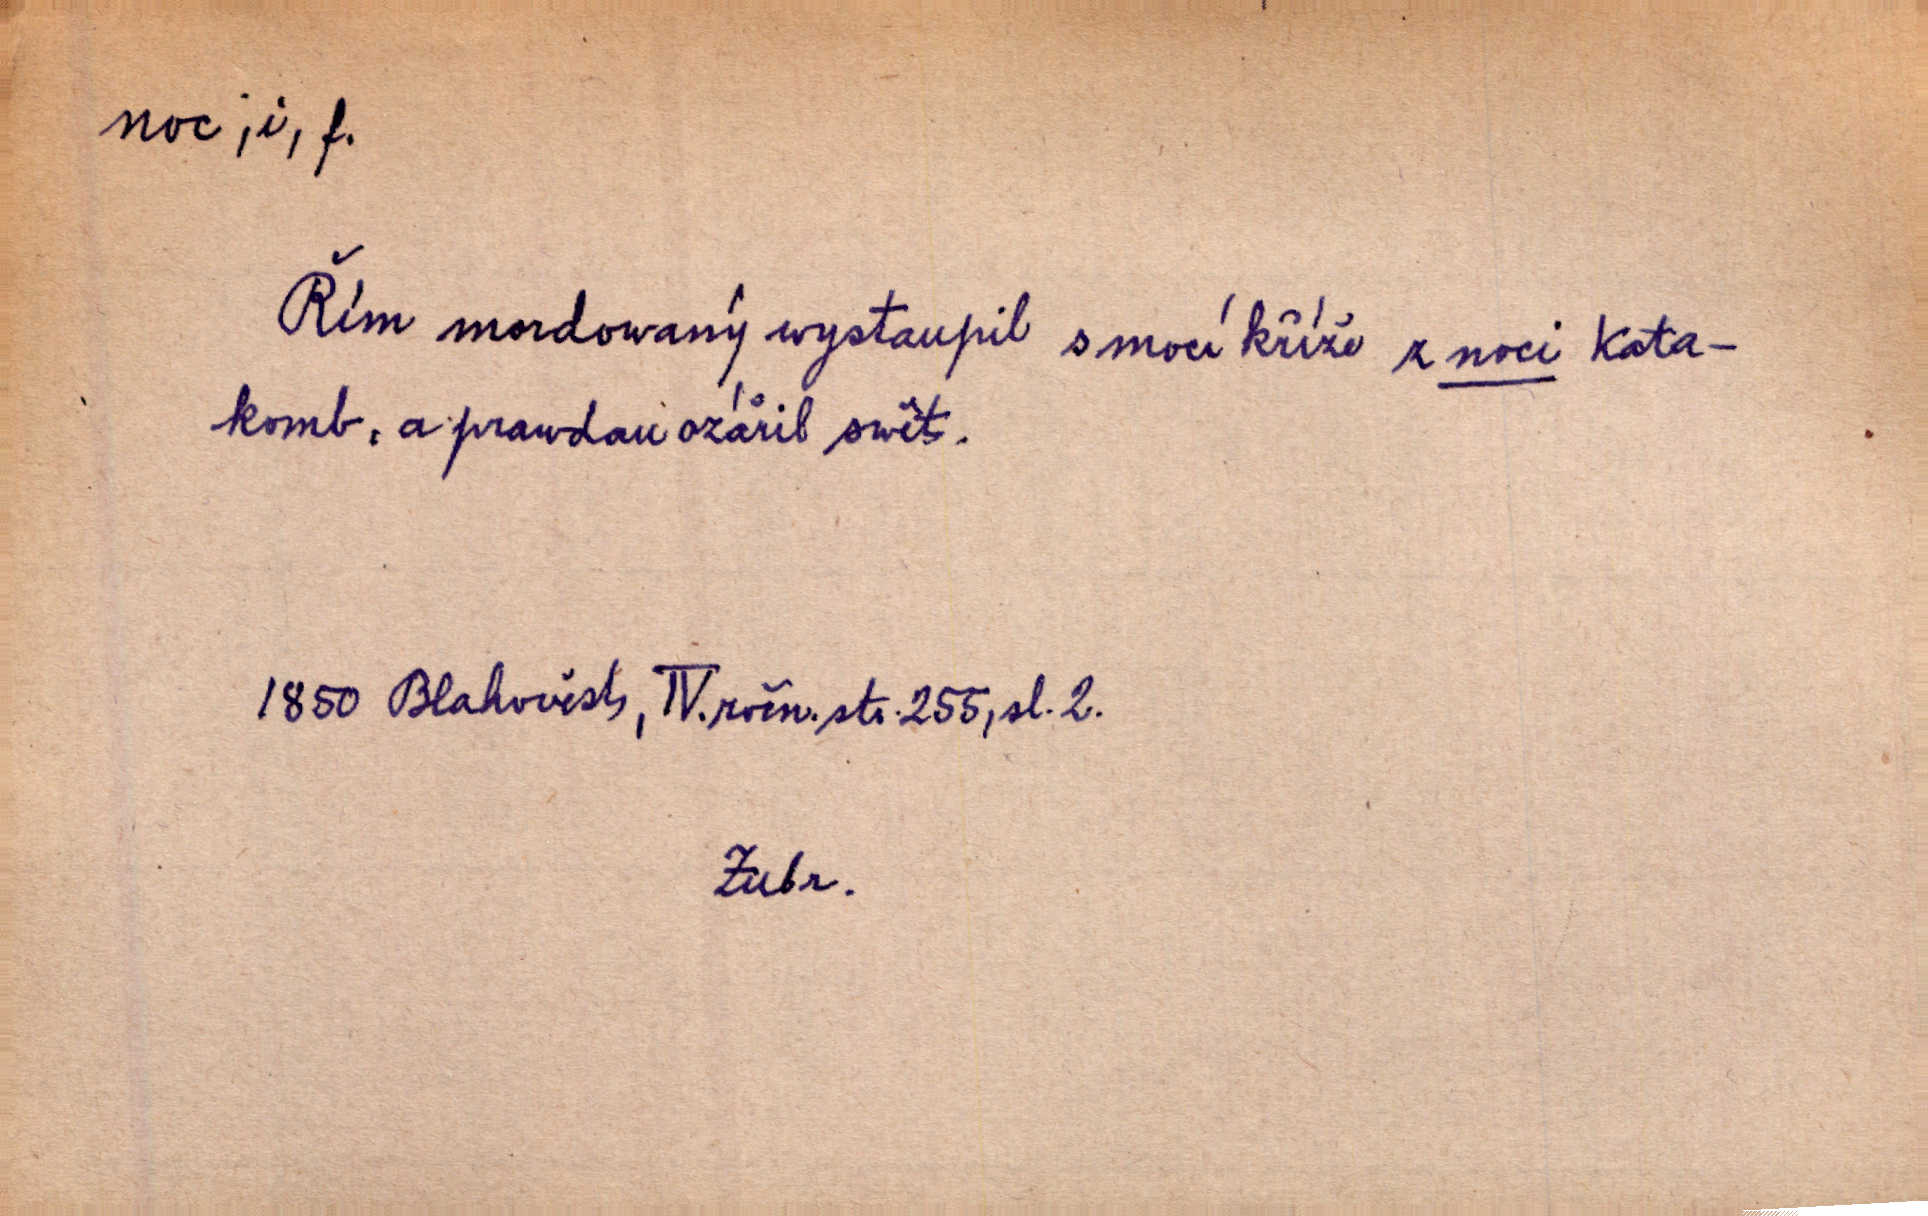 noc, i, f.
Řím mordowaný wystaupil s mocí kříže z noci kata-
komb, a prawdau ozářil swět.
1850 Blahověst, IV. ročn. str. 255, sl. 2.
Zubr.